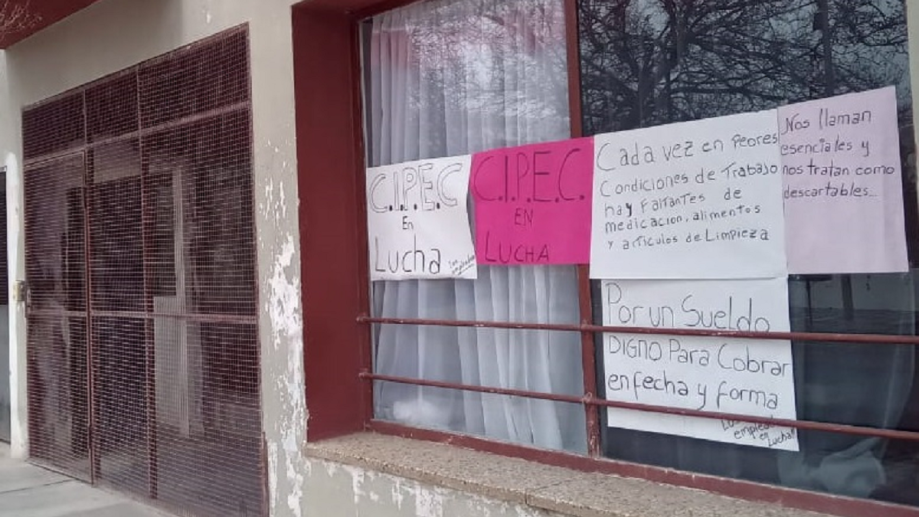 C.I.P.E.C
En
Lucha
Los empleados
C.I.P.E.C.
EN
LUCHA
Cada vez en Peores
Condiciones de Trabajo
hay Faltantes de
medicacion, alimentos
y articulos de Limpieza
Nos llaman
esenciales y
nos tratan como
descartables...
Por un Sueldo
DIGNO Para Cobrar
en fecha y forma
Los
emplead
en Lucha!!